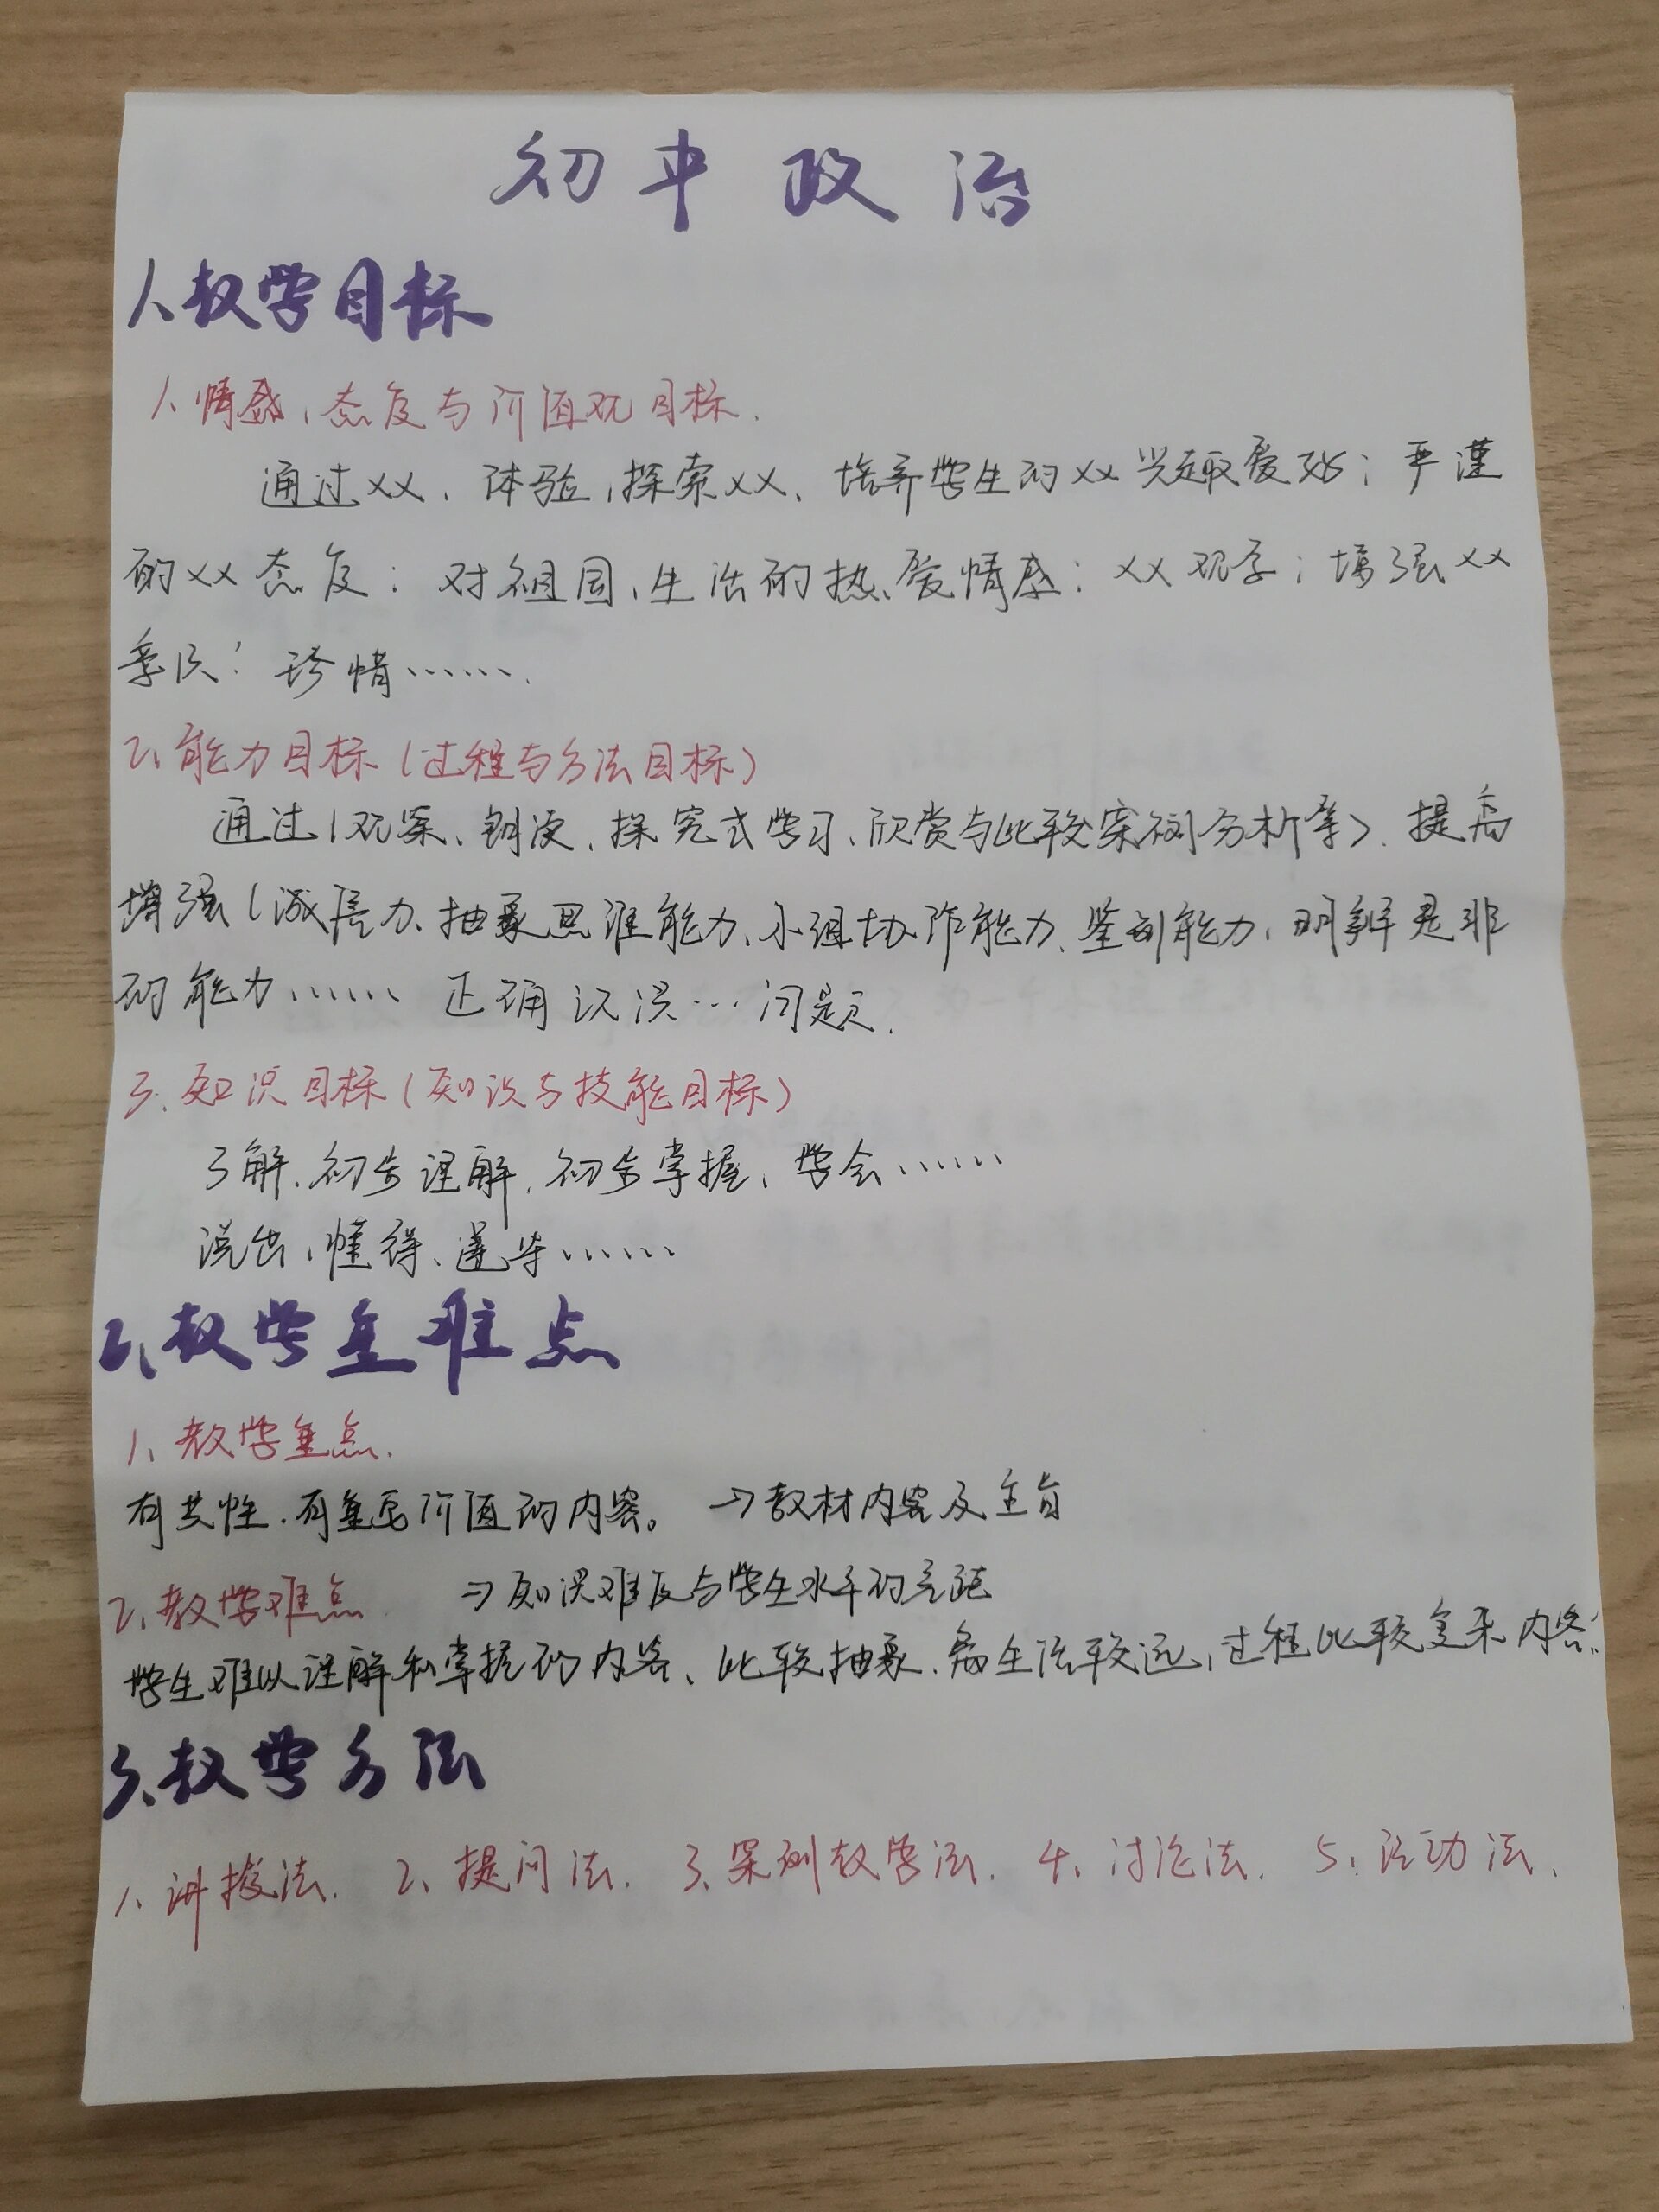 初中政治
1、教学目标
1、情感、态度与价值观目标.
通过xx、体验、探索xx、培养学生的xx兴趣爱好；严谨
的xx态度；对祖国、生活的热爱情感；xx观念；增强xx
意识；珍惜…….
2、能力目标(过程与方法目标)
通过(观察、制决、探究式学习、欣赏与比较案例分析等)、提高
增强(减压力、抽象思维能力、小组协作能力、鉴别能力、明辨是非
的能力…… 正确认识…问题.
3、知识目标(知识与技能目标)
了解、初步理解、初步掌握、学会……
说出、懂得、遵守……
2、教学重难点
1、教学重点.
有共性、有重要价值的内容。→教材内容及主旨
2、教学难点 →知识难度与学生水平的差距
学生难以理解和掌握的内容、比较抽象、离生活较远、过程比较复杂内容.
3、教学方法
1、讲授法. 2、提问法. 3、案例教学法. 4、讨论法. 5、活动法.